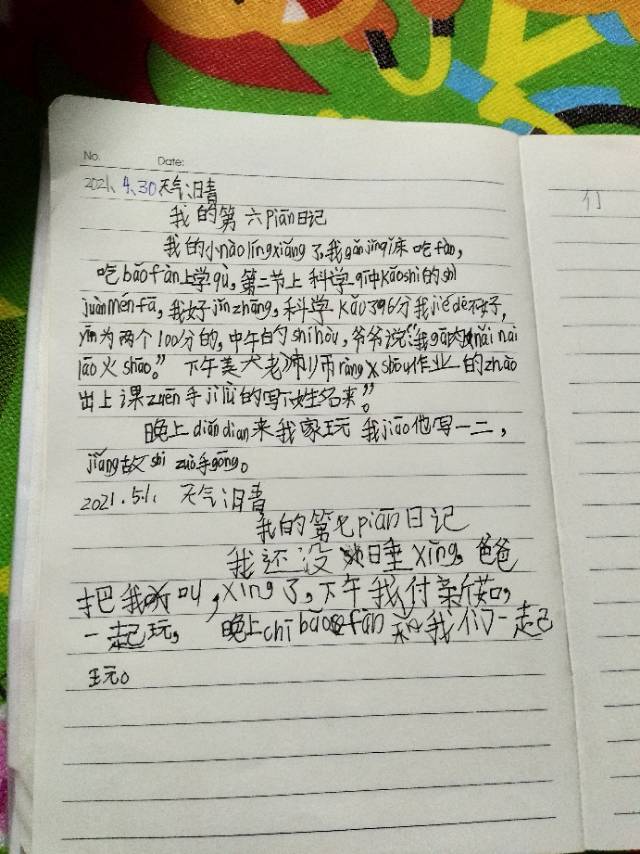 No. Date:
2021、4、30 天气：晴
我的第六piān日记
我的小nào líng xiǎng了,我gǎn jǐn qǐ床吃fàn,
吃bǎo fàn上学qù,第二节上科学qī中kǎoshì的shì
juàn mén fā,我好jǐn zhāng,科学kǎo了96分我jié dé不好,
yīn为两个100分的,中午的shí hòu,爷爷说:“我gē肉nǎi nai
lāo火shāo。”下午美犬老师ràng x shōu作业的zhào
出上课zuēn手jì lù的写下姓名来”。
晚上diǎn dian来我家玩我jiāo他写一二,
jiǎng故shi zuò手gōng。
2021.5.1、 天气：晴
我的第七piān日记
我还没睡xǐng,爸爸
把我叫,xǐng了,下午我付新如,
一起玩, 晚上chī bǎo fàn 和我们一起
玩。
们